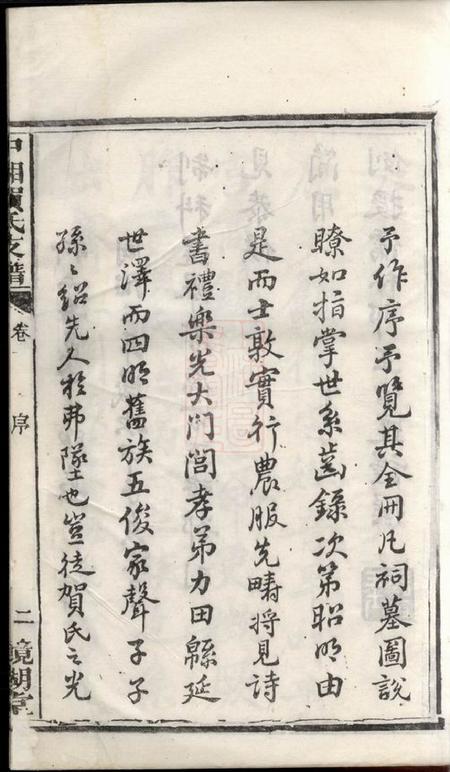 予作序予覽其全冊凡祠墓圖說
瞭如指掌世系蓝錄次第昭明由
是而士敦實行農服先疇將見詩
書禮樂光大门閭孝弟力田緜延
世澤而四明舊族五俊家聲子子
孫〻紹先人於弗墜也豈徒賀氏之光
中湘賀氏支譜
卷
序
二
鏡湖堂